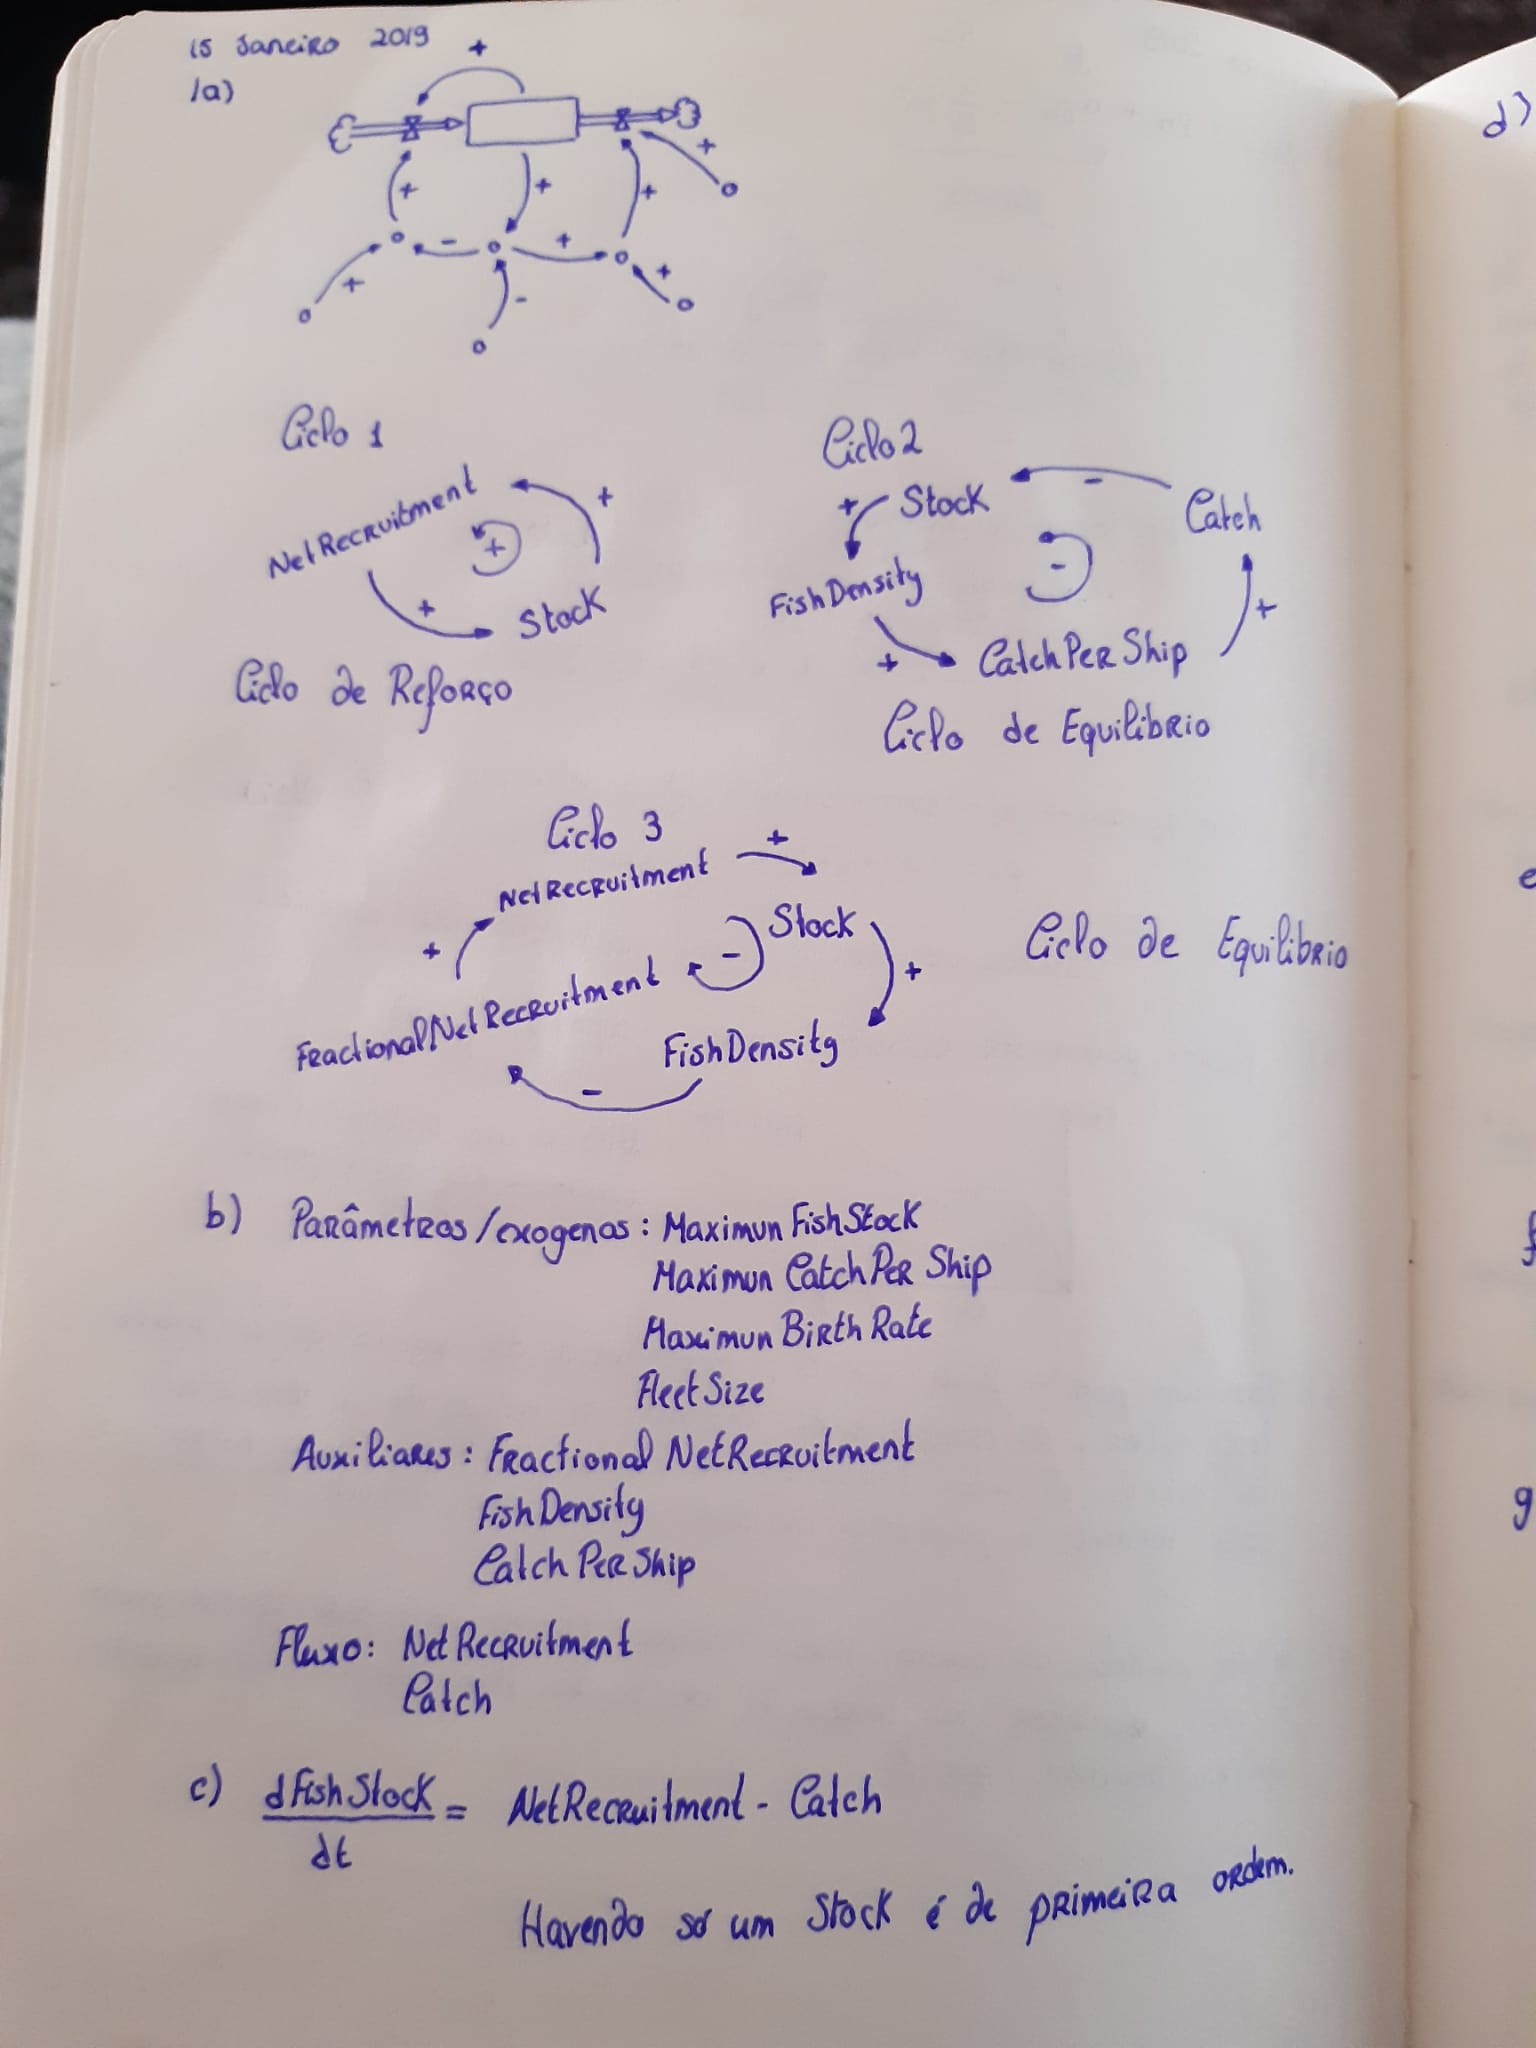 15 Janeiro 2019
1a)
+
+
+
+
+
-
+
+
+
-
Ciclo 1
NetRecruitment
+
+
+
Stock
Ciclo de Reforço
Ciclo 2
Stock
-
Catch
+
-
FishDensity
+
+
CatchPerShip
Ciclo de Equilibrio
Ciclo 3
NetRecruitment
+
Stock
+
-
+
FractionalNetRecruitment
FishDensity
-
Ciclo de Equilibrio
b) Parâmetros/exogenas: Maximun FishStock
Maximun CatchPer Ship
Maximun Birth Rate
FleetSize
Auxiliares: Fractional NetRecruitment
FishDensity
Catch Per Ship
Fluxo: NetRecruitment
Catch
c) dFishStock = NetRecruitment - Catch
dt
Havendo só um Stock é de primeira ordem.
d)
e
f
g